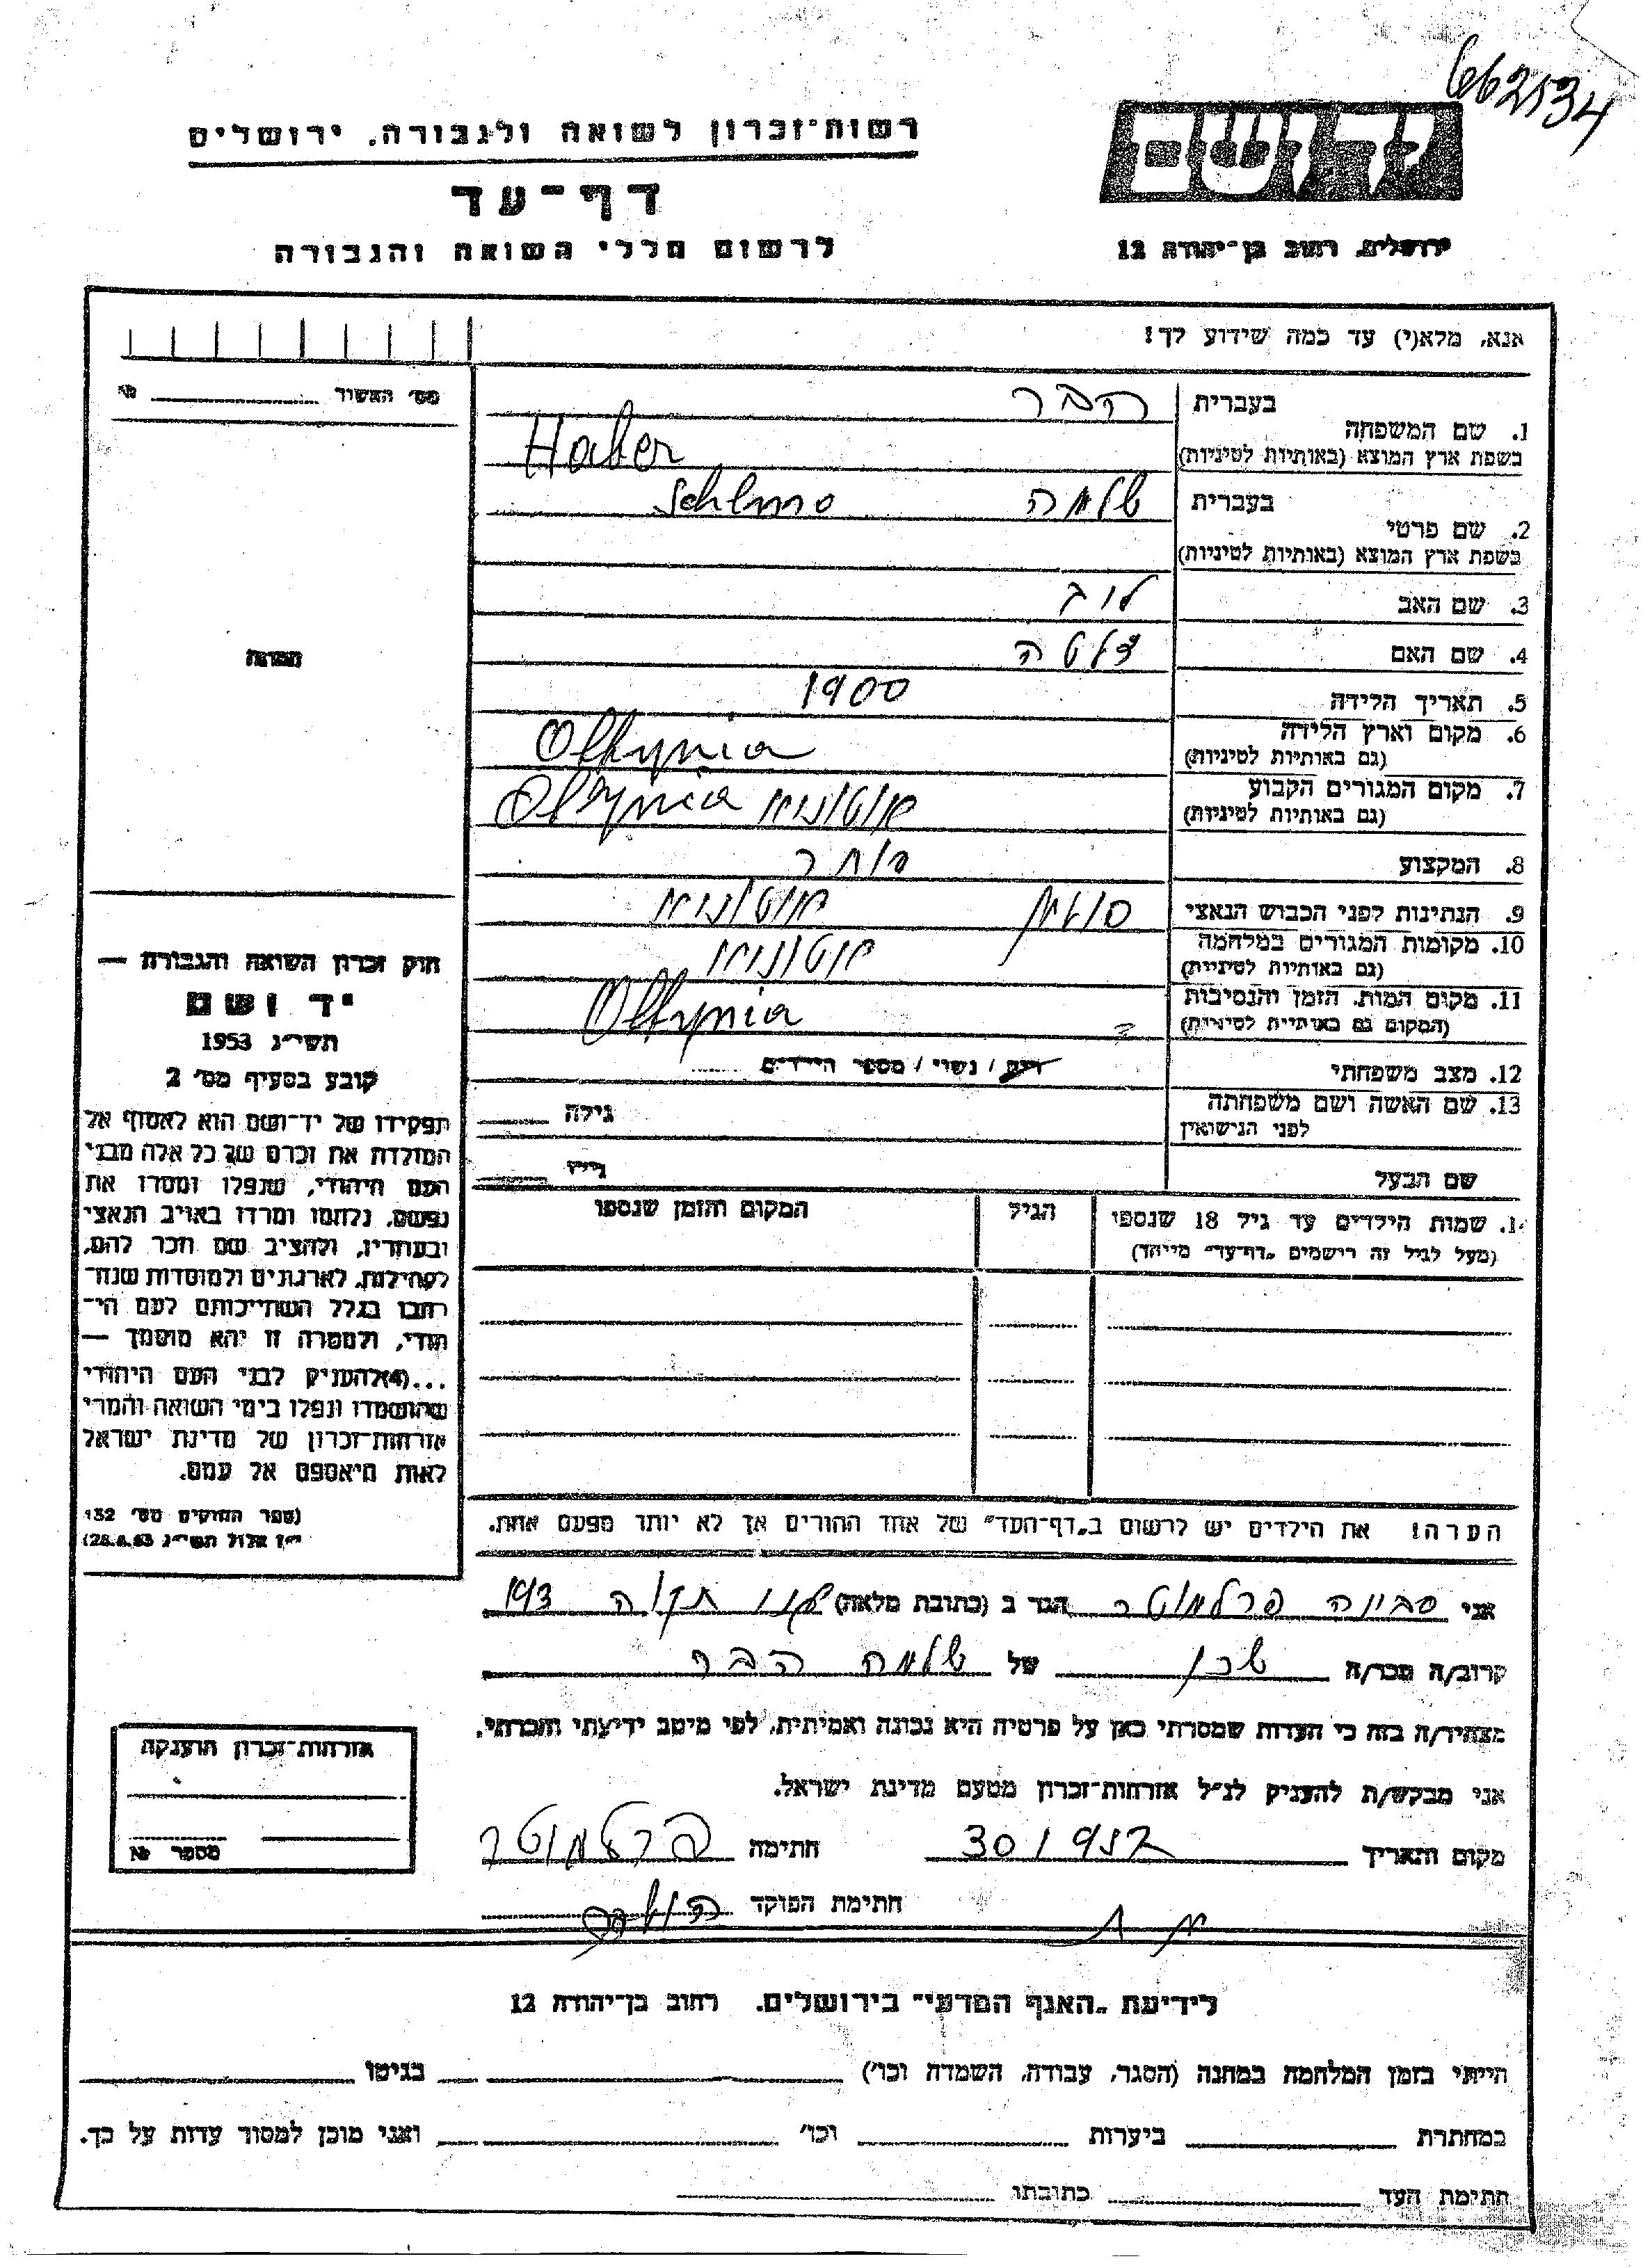 662134
רשות־זכרון לשואה ולגבורה, ירושלים
דף־עד
לרשום חללי השואה והגבורה
יד ושם
ירושלים, רחוב בן־יהודה 12
אנא, מלא(י) עד כמה שידוע לך!
מס' האשור № 
בעברית הבר
1. שם המשפחה
בשפת ארץ המוצא (באותיות לטיניות) Haber
בעברית שלמה Schlmo
2. שם פרטי
בשפת ארץ המוצא (באותיות לטיניות)
3. שם האב
4. שם האם זלטה
תמונה
5. תאריך הלידה 1900
6. מקום וארץ הלידה
(גם באותיות לטיניות) Oltynia
7. מקום המגורים הקבוע
(גם באותיות לטיניות) Oltynia
8. המקצוע סוחר
9. הנתינות לפני הכבוש הנאצי
10. מקומות המגורים במלחמה
(גם באותיות לטיניות)
11. מקום המות, הזמן והנסיבות
(המקום גם באותיות לטיניות) Oltynia
12. מצב משפחתי רוק / נשוי / מספר הילדים
13. שם האשה ושם משפחתה
לפני הנישואין גילה
שם הבעל גילו
שמות הילדים עד גיל 18 שנספו הגיל המקום והזמן שנספו
(מעל לגיל זה רושמים „דף־עד" מיוחד)
חוק זכרון השואה והגבורה —
יד ושם
תשי"ג 1953
קובע בסעיף מס' 2
תפקידו של יד־ושם הוא לאסוף אל
המולדת את זכרם של כל אלה מבני
העם היהודי, שנפלו ומסרו את
נפשם, נלחמו ומרדו באויב הנאצי
ובעוזריו, ולהציב שם וזכר להם,
לקהילות, לארגונים ולמוסדות שנח־
רבו בגלל השתייכותם לעם הי־
הודי, ולמטרה זו יהא מוסמך —
...(4)להעניק לבני העם היהודי
שהושמדו ונפלו בימי השואה והמרי
אזרחות־זכרון של מדינת ישראל
לאות היאספם אל עמם.
(ספר החוקים מס' 132
י"ז אלול תשי"ג 28.8.53)
הערה! את הילדים יש לרשום ב„דף־העד" של אחד ההורים אך לא יותר מפעם אחת.
אני סביונה פרלמוטר הגר ב (כתובת מלאה) תקוה 193
קרוב/ה מכר/ה שכן של שלמה הבר
מצהיר/ה בזה כי העדות שמסרתי כאן על פרטיה היא נכונה ואמיתית, לפי מיטב ידיעתי והכרתי.
אני מבקש/ת להעניק לנ"ל אזרחות־זכרון מטעם מדינת ישראל.
מקום ותאריך חתימה פרלמוטר
חתימת הפוקד
אזרחות־זכרון הוענקה
מספר №
לידיעת „האגף המדעי" בירושלים. רחוב בן־יהודה 12
הייתי בזמן המלחמה במחנה (הסגר, עבודה, השמדה וכו') בגיטו
במחתרת ביערות וכו' ואני מוכן למסור עדות על כך.
חתימת העד כתובתו